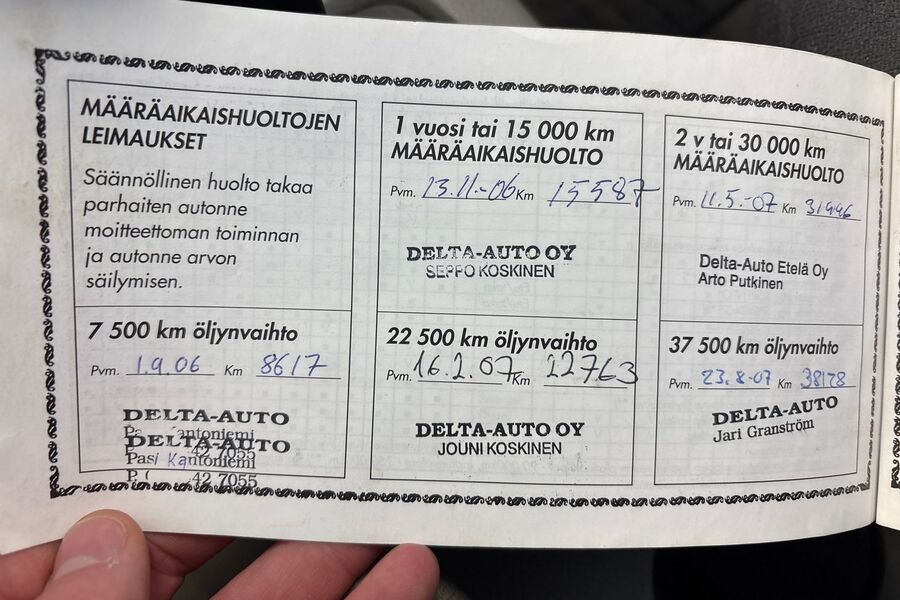 MÄÄRÄAIKAISHUOLTOJEN
LEIMAUKSET
Säännöllinen huolto takaa
parhaiten autonne
moitteettoman toiminnan
ja autonne arvon
säilymisen.
7 500 km öljynvaihto
Pvm. 1.9.06 Km 8617
DELTA-AUTO
DELTA-AUTO
42 7055
Pasi Kantoniemi
42 7055
1 vuosi tai 15 000 km
MÄÄRÄAIKAISHUOLTO
Pvm. 13.11.-06 Km 15587
DELTA-AUTO OY
SEPPO KOSKINEN
22 500 km öljynvaihto
Pvm. 16.2.07 Km 22763
DELTA-AUTO OY
JOUNI KOSKINEN
2 v tai 30 000 km
MÄÄRÄAIKAISHUOLTO
Pvm. 11.5.-07 Km 31446
Delta-Auto Etelä Oy
Arto Putkinen
37 500 km öljynvaihto
Pvm. 23.8-07 Km 38178
DELTA-AUTO
Jari Granström